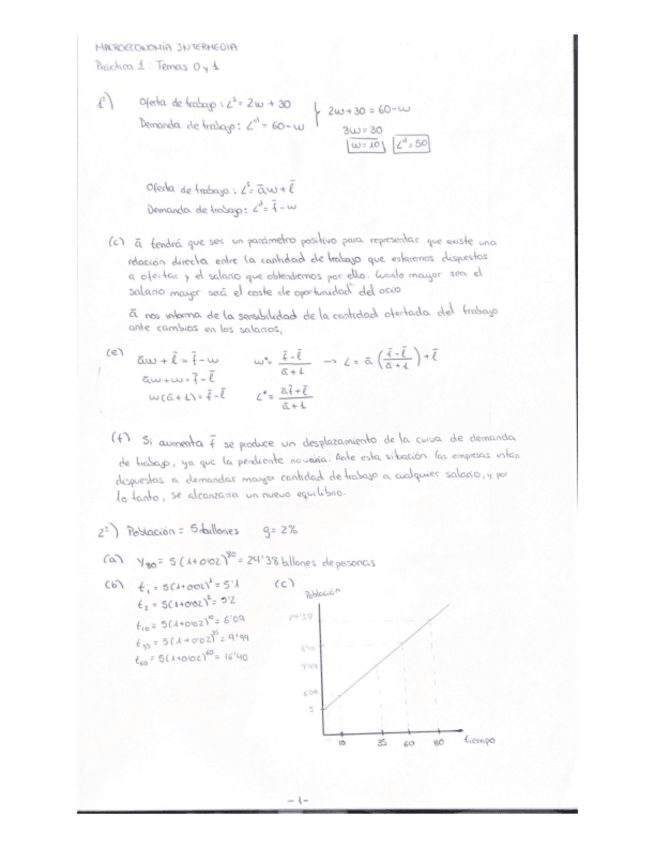 MACROECONOMÍA INTERMEDIA
Práctica 1: Temas 0 y 1
1º) Oferta de trabajo: Lˢ = 2w + 30
Demanda de trabajo: Lᵈ = 60 - w
2w + 30 = 60 - w
3w = 30
w = 10 Lᵈ = 50
Oferta de trabajo: Lˢ = āw + l̄
Demanda de trabajo: Lᵈ = f̄ - w
(c) ā tendrá que ser un parámetro positivo para representar que existe una
relación directa entre la cantidad de trabajo que estaremos dispuestos
a ofertar y el salario que obtendremos por ello. Cuanto mayor sea el
salario mayor será el coste de oportunidad del ocio
ā nos informa de la sensibilidad de la cantidad ofertada del trabajo
ante cambios en los salarios,
(e) āw + l̄ = f̄ - w w* = (f̄ - l̄)/(ā + 1) → L = ā ((f̄ - l̄)/(ā + 1)) + l̄
āw + w = f̄ - l̄
w(ā + 1) = f̄ - l̄ L* = (āf̄ + l̄)/(ā + 1)
(f) Si aumenta f̄ se produce un desplazamiento de la curva de demanda
de trabajo, ya que la pendiente no varía. Ante esta situación las empresas están
dispuestas a demandar mayor cantidad de trabajo a cualquier salario, y por
lo tanto, se alcanzaría un nuevo equilibrio.
2º) Población = 5 billones g = 2%
(a) y₈₀ = 5(1+0'02)⁸⁰ = 24'38 billones de personas
(b) t₁ = 5(1+0'02)¹ = 5'1
t₂ = 5(1+0'02)² = 5'2
t₁₀ = 5(1+0'02)¹⁰ = 6'09
t₃₅ = 5(1+0'02)³⁵ = 9'99
t₆₀ = 5(1+0'02)⁶⁰ = 16'40
(c)
Población
24'38
9'99
6'09
5
10 35 60 80 tiempo
-1-